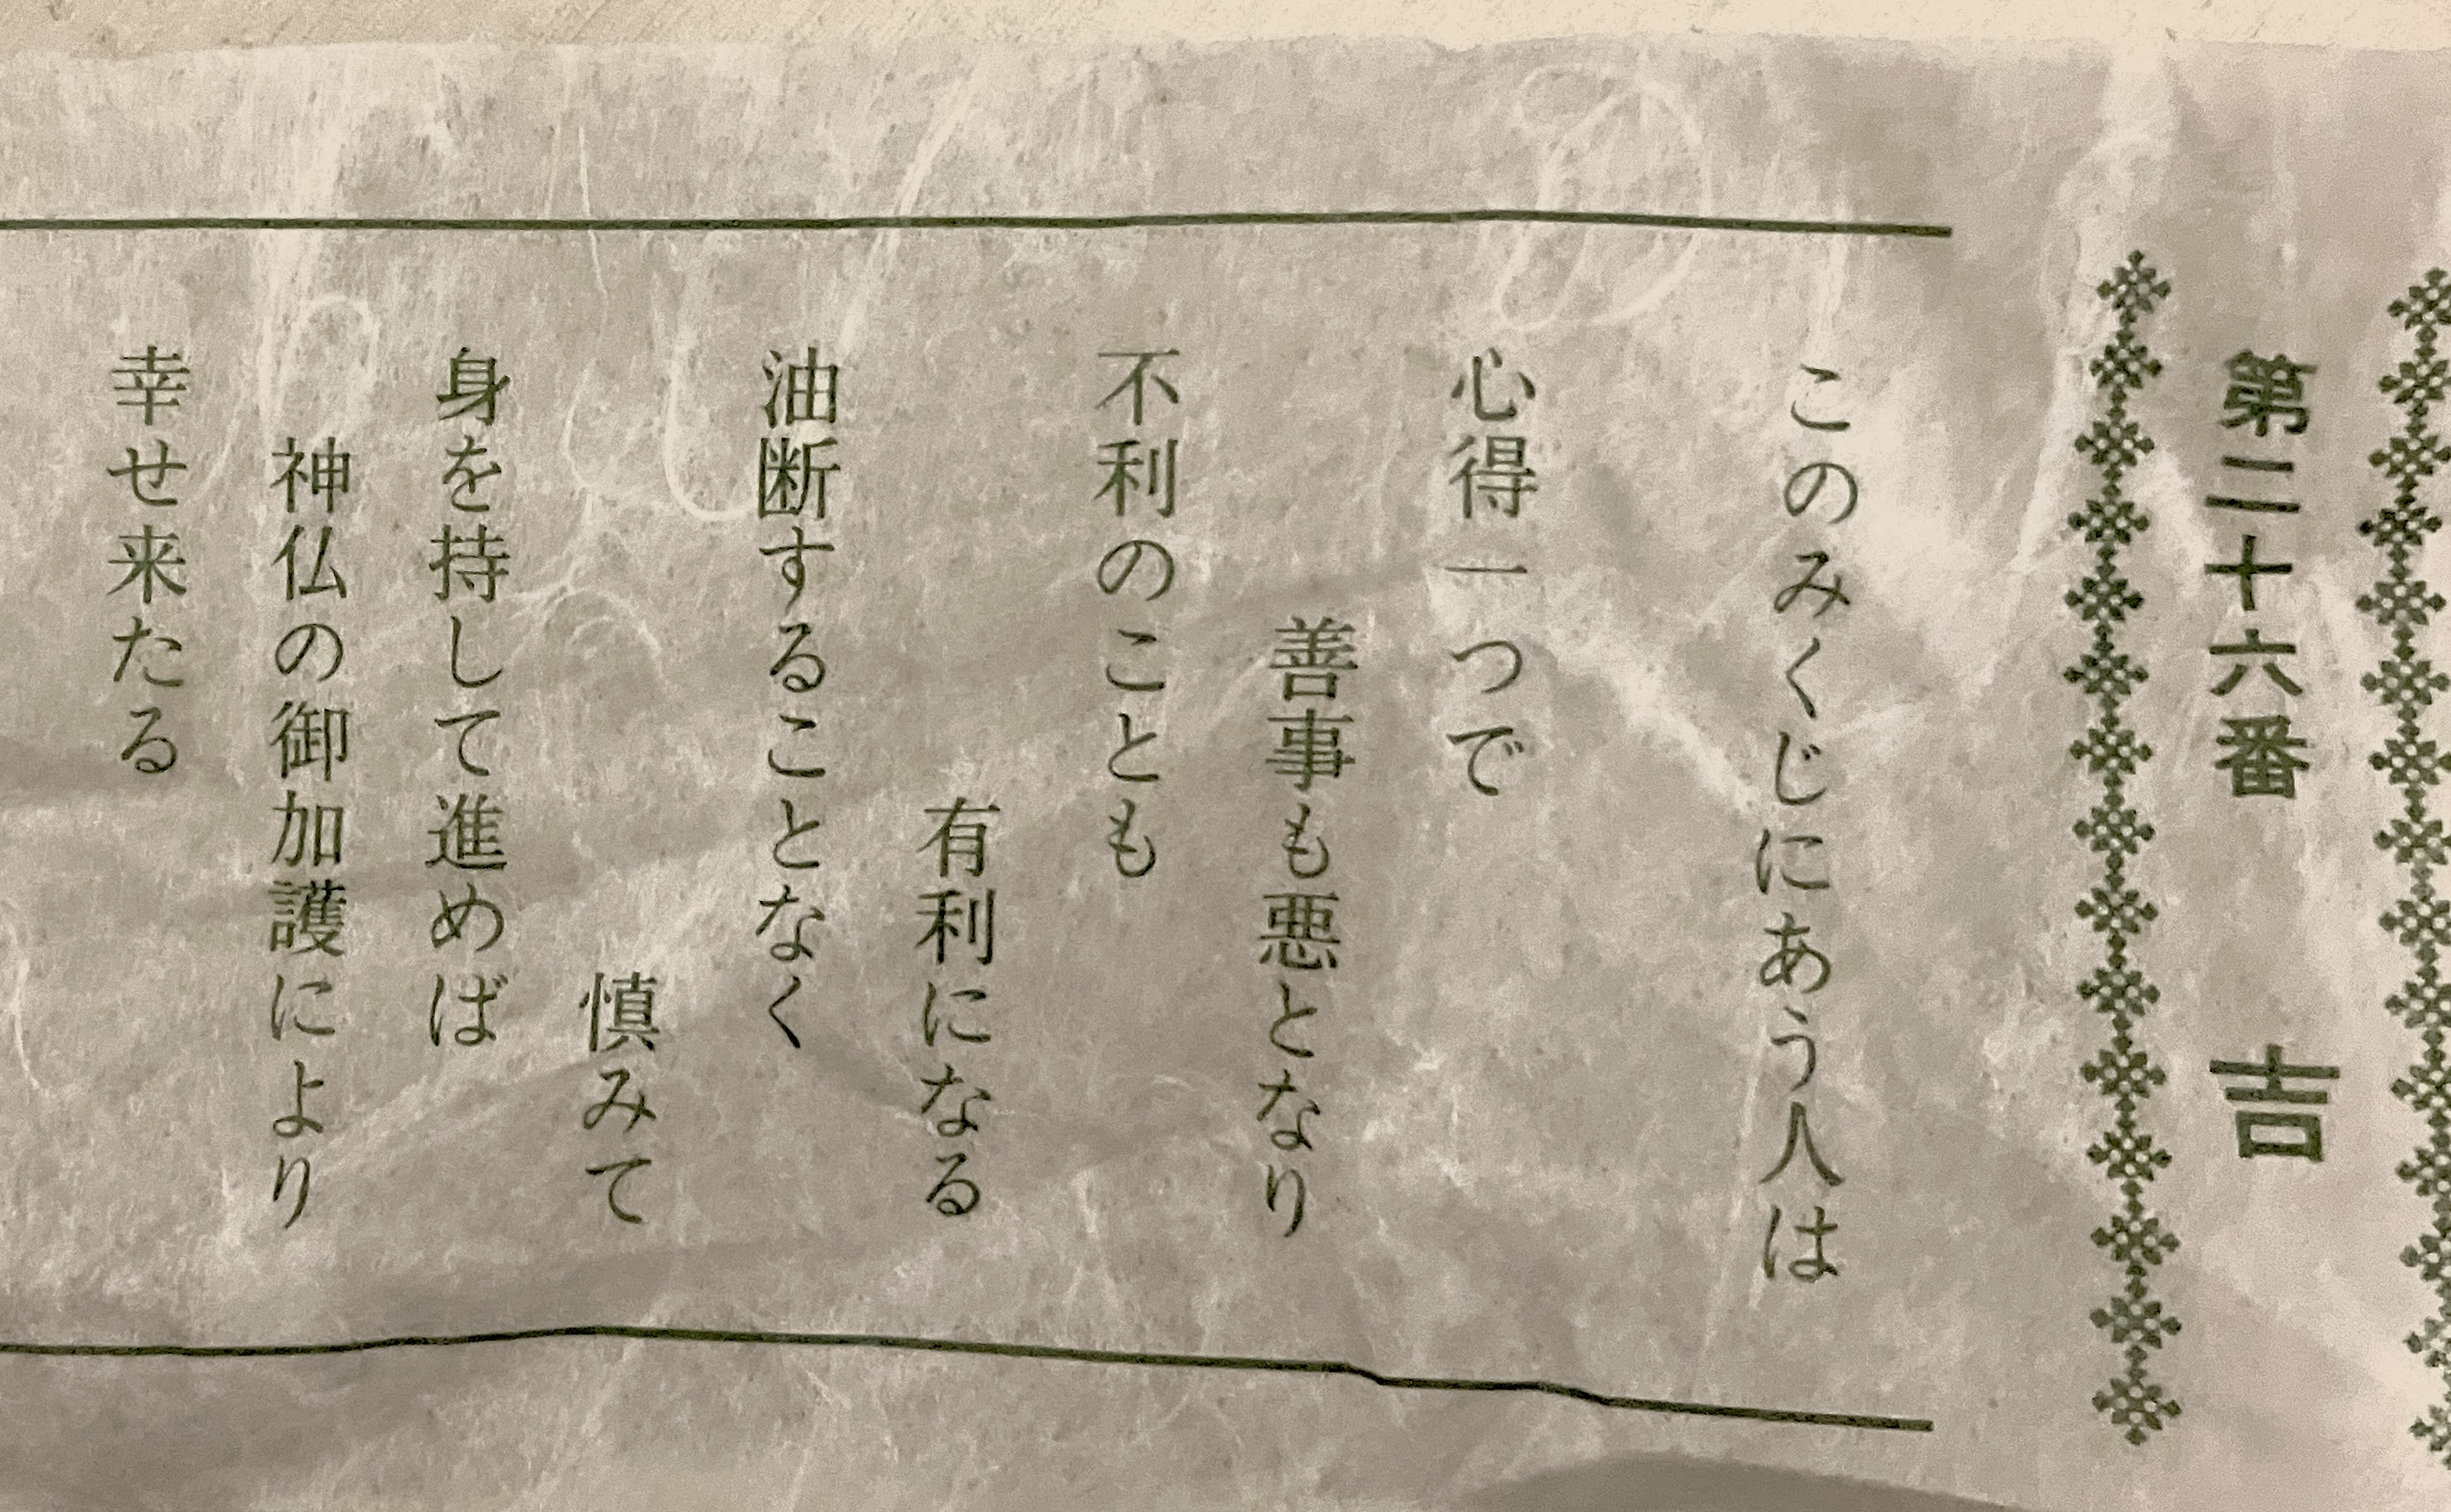 第二十六番 吉
このみくじにあう人は
心得一つで
善事も悪となり
不利のことも
有利になる
油断することなく
慎みて
身を持して進めば
神仏の御加護により
幸せ来たる